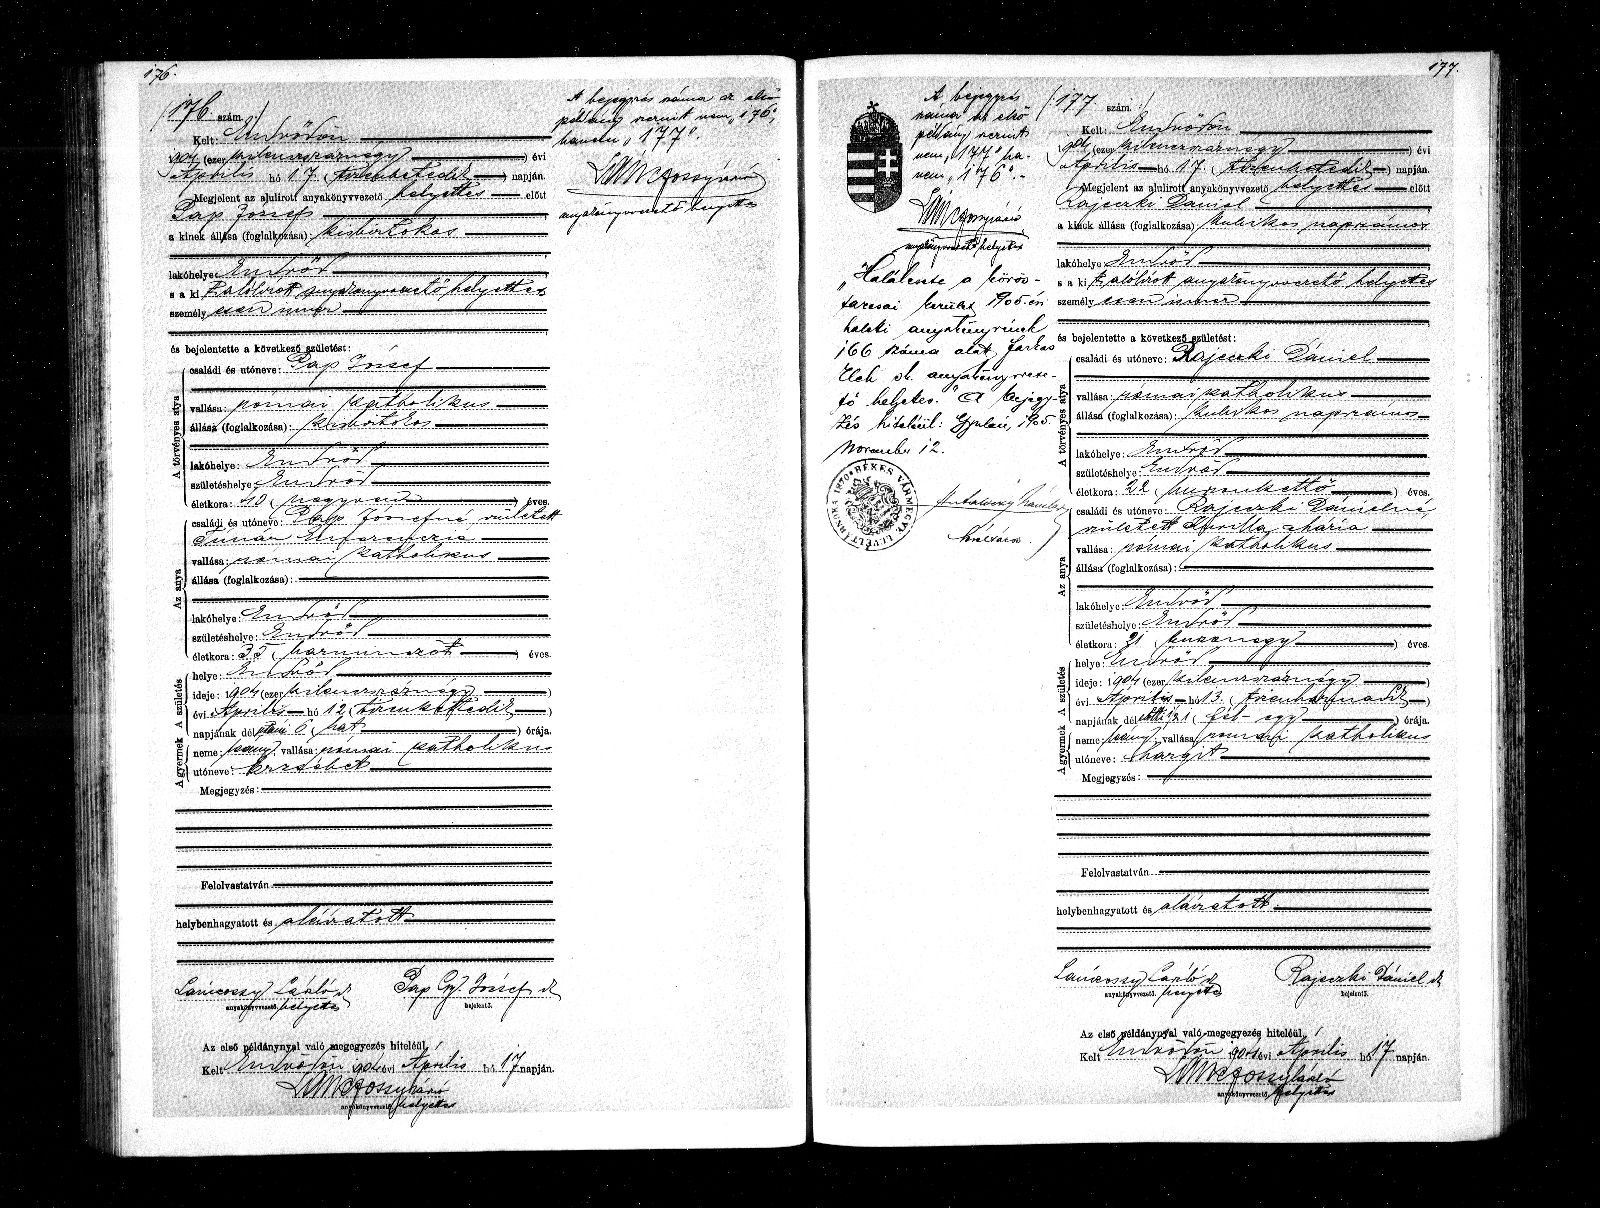 176.
176. szám.
Kelt: Endrődön
1904 (ezerkilenczszáznégy) évi
Április hó 17. (tizenhetedik) napján.
Megjelent az alulirott anyakönyvvezető helyettes előtt
Pap József
a kinek állása (foglalkozása): kisbirtokos
lakóhelye: Endrőd
s a kit alólirott anyakönyvvezető helyettes
személyesen ismer
és bejelentette a következő születést:
A törvényes atya
családi és utóneve: Pap József
vallása: római katholikus
állása (foglalkozása): kisbirtokos
lakóhelye: Endrőd
születéshelye: Endrőd
életkora: 40 (negyven) éves.
Az anya
családi és utóneve: Pap Józsefné, született
Tímár
vallása: római katholikus
állása (foglalkozása):
lakóhelye: Endrőd
születéshelye: Endrőd
életkora: 35 (harminczöt) éves.
A gyermek A születés
helye: Endrőd
ideje: 1904 (ezerkilenczszáznégy)
évi Április hó 12 (tizenkettedik)
napjának dél 6 (hat) órája.
neme: leány vallása: római katholikus
utóneve: Erzsébet
Megjegyzés:
Felolvastatván
helybenhagyatott és aláiratott
Lanczossy László sk Pap Gy József sk
anyakönyvvezető. helyettes bejelentő.
Az első példánynyal való megegyezés hiteléül,
Kelt Endrődön 1904 évi Április hó 17 napján.
Lanczossy László
anyakönyvvezető helyettes
A bejegyzés száma az első
példány szerint nem "176",
hanem "177".
Lanczossy László
anyakönyvvezető helyettes
177.
177 szám.
Kelt: Endrődön
1904 (ezerkilenczszáznégy) évi
Április hó 17. (tizenhetedik) napján.
Megjelent az alulirott anyakönyvvezető helyettes előtt
Rajeczki Dániel
a kinek állása (foglalkozása): kubikos napszámos
lakóhelye: Endrőd
s a kit alólirott anyakönyvvezető helyettes
személyesen ismer
és bejelentette a következő születést:
A törvényes atya
családi és utóneve: Rajeczki Dániel
vallása: római katholikus
állása (foglalkozása): kubikos napszámos
lakóhelye: Endrőd
születéshelye: Endrőd
életkora: 22 (huszonkettő) éves.
Az anya
családi és utóneve: Rajeczki Dánielné,
született Mária
vallása: római katholikus
állása (foglalkozása):
lakóhelye: Endrőd
születéshelye: Endrőd
életkora: 21 éves.
A gyermek A születés
helye: Endrőd
ideje: 1904 (ezerkilenczszáznégy)
évi Április hó 13. (tizenharmadik)
napjának dél előtti (fél egy) órája.
neme: leány vallása: római katholikus
utóneve: Margit
Megjegyzés:
Felolvastatván
helybenhagyatott és aláiratott.
Lanczossy László sk Rajeczki Dániel sk
anyakönyvvezető. helyettes bejelentő.
Az első példánynyal való megegyezés hiteléül,
Kelt Endrődön 1904 évi Április hó 17 napján.
Lanczossy László
anyakönyvvezető helyettes
A bejegyzés
száma az első
példány szerint
nem "177" ha-
nem "176".
Lanczossy László
anyakönyvvezető helyettes
"Halálesete a körös-
tarcsai kerület 1905. évi
haláti anyakönyvének
166 száma alatt. Farkas
Elek sk. anyakönyvveze-
tő helyettes." A bejegy-
zés hiteléül: Gyulán, 1905.
November 12.
BÉKES VÁRMEGYE LEVÉLTÁRNOKA 1870